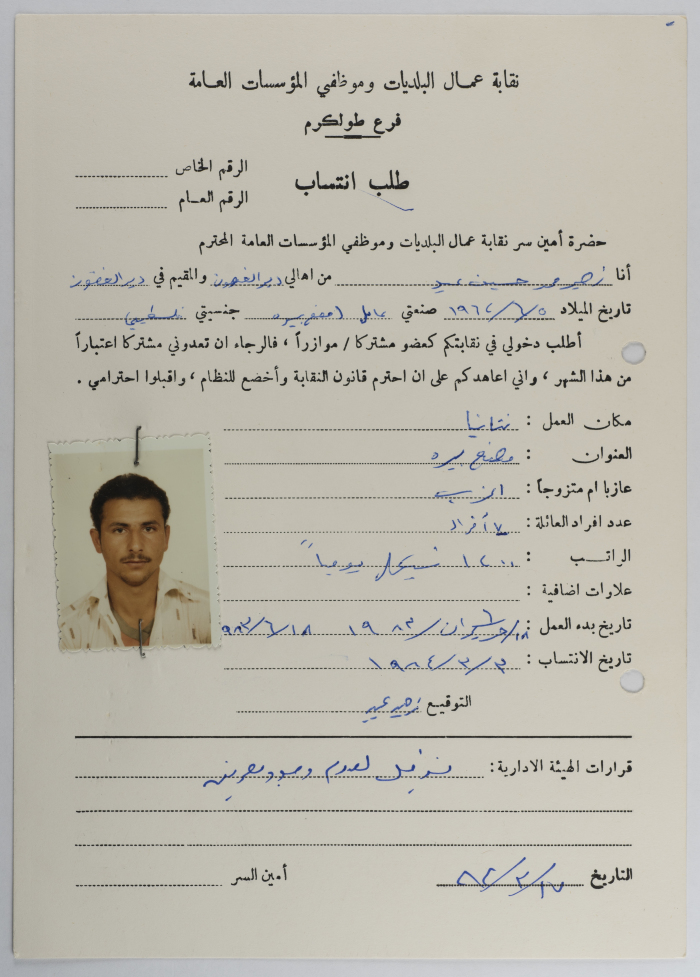 نقابة عمال البلديات وموظفي المؤسسات العامة
فرع طولكرم
الرقم الخاص
طلب انتساب
الرقم العام
حضرة أمين سر نقابة عمال البلديات وموظفي المؤسسات العامة المحترم
أنا زهير حسين عبيد من اهالي دير الغصون والمقيم في دير الغصون
تاريخ الميلاد ١٩٦٢/٦/٥ صنعتي عامل جنسيتي فلسطيني
أطلب دخولي في نقابتكم كعضو مشتركا / موازراً ، فالرجاء ان تعدوني مشتركا اعتباراً
من هذا الشهر ، واني اعاهدكم على ان احترم قانون النقابة وأخضع للنظام ، واقبلوا احترامي .
مكان العمل : نتانيا
العنوان : مصنع بيره
عازبا ام متزوجاً : اعزب
عدد افراد العائلة : ٧ أفراد
الراتب : ١٢٠٠ شيكل يومياً
علاوات اضافية :
تاريخ بدء العمل : ١٨/حزيران/١٩٨٣ ٩٨٣/٦/١٨
تاريخ الانتساب : ١٩٨٤/٣/٣
التوقيع زهير عبيد
قرارات الهيئة الادارية : لعدم وجود
التاريخ ٨٤/٣/١٧ أمين السر